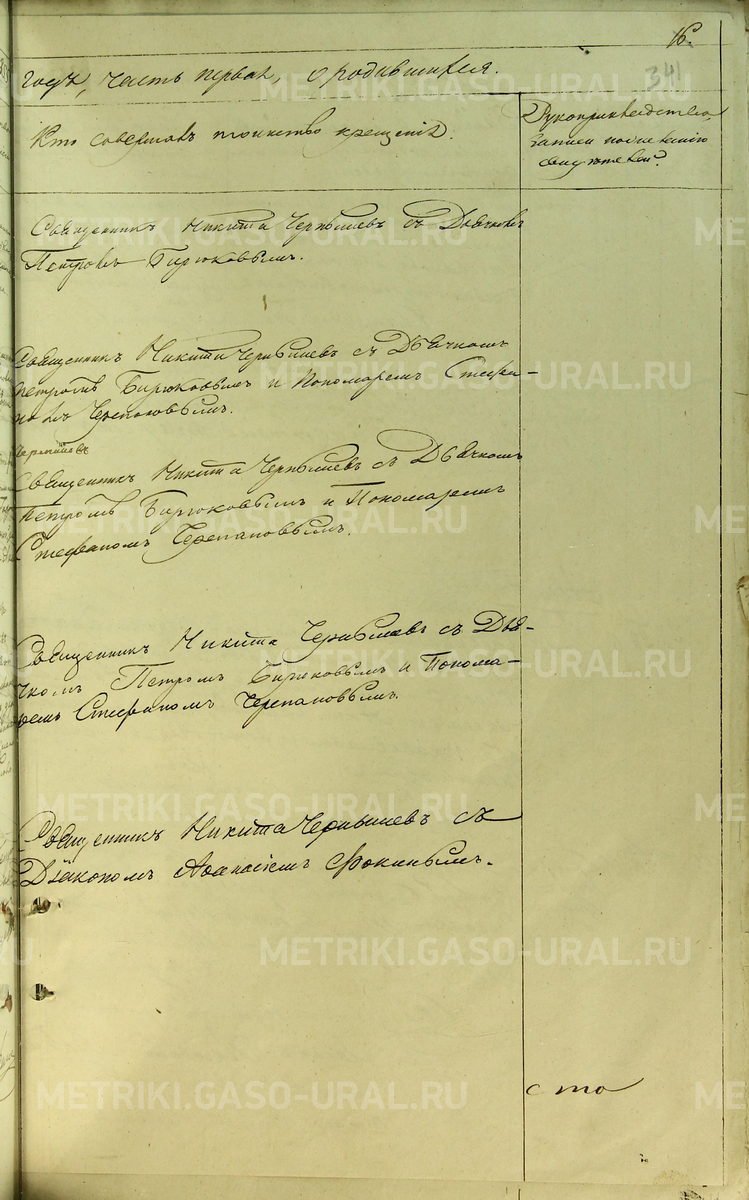 16.
341
годъ, часть первая, о родившихся.
Кто совершалъ таинство крещенія.
Рукоприкладство
записи по желанію
Священникъ Никита Чернышевъ съ Дьячкомъ
Петромъ Бирюковымъ.
Священникъ Никита Чернышевъ съ Дьячкомъ
Петромъ Бирюковымъ и Пономаремъ Стефа-
номъ Черепановымъ.
Священникъ Никита Чернышевъ съ Дьячкомъ
Петромъ Бирюковымъ и Пономаремъ
Стефаномъ Черепановымъ.
Священникъ Никита Чернышевъ съ Дья-
чкомъ Петромъ Бирюковымъ и Понома-
ремъ Стефаномъ Черепановымъ.
Священникъ Никита Чернышевъ съ
Діакономъ Афанасіемъ Фокинымъ.
сто
METRIKI.GASO-URAL.RU